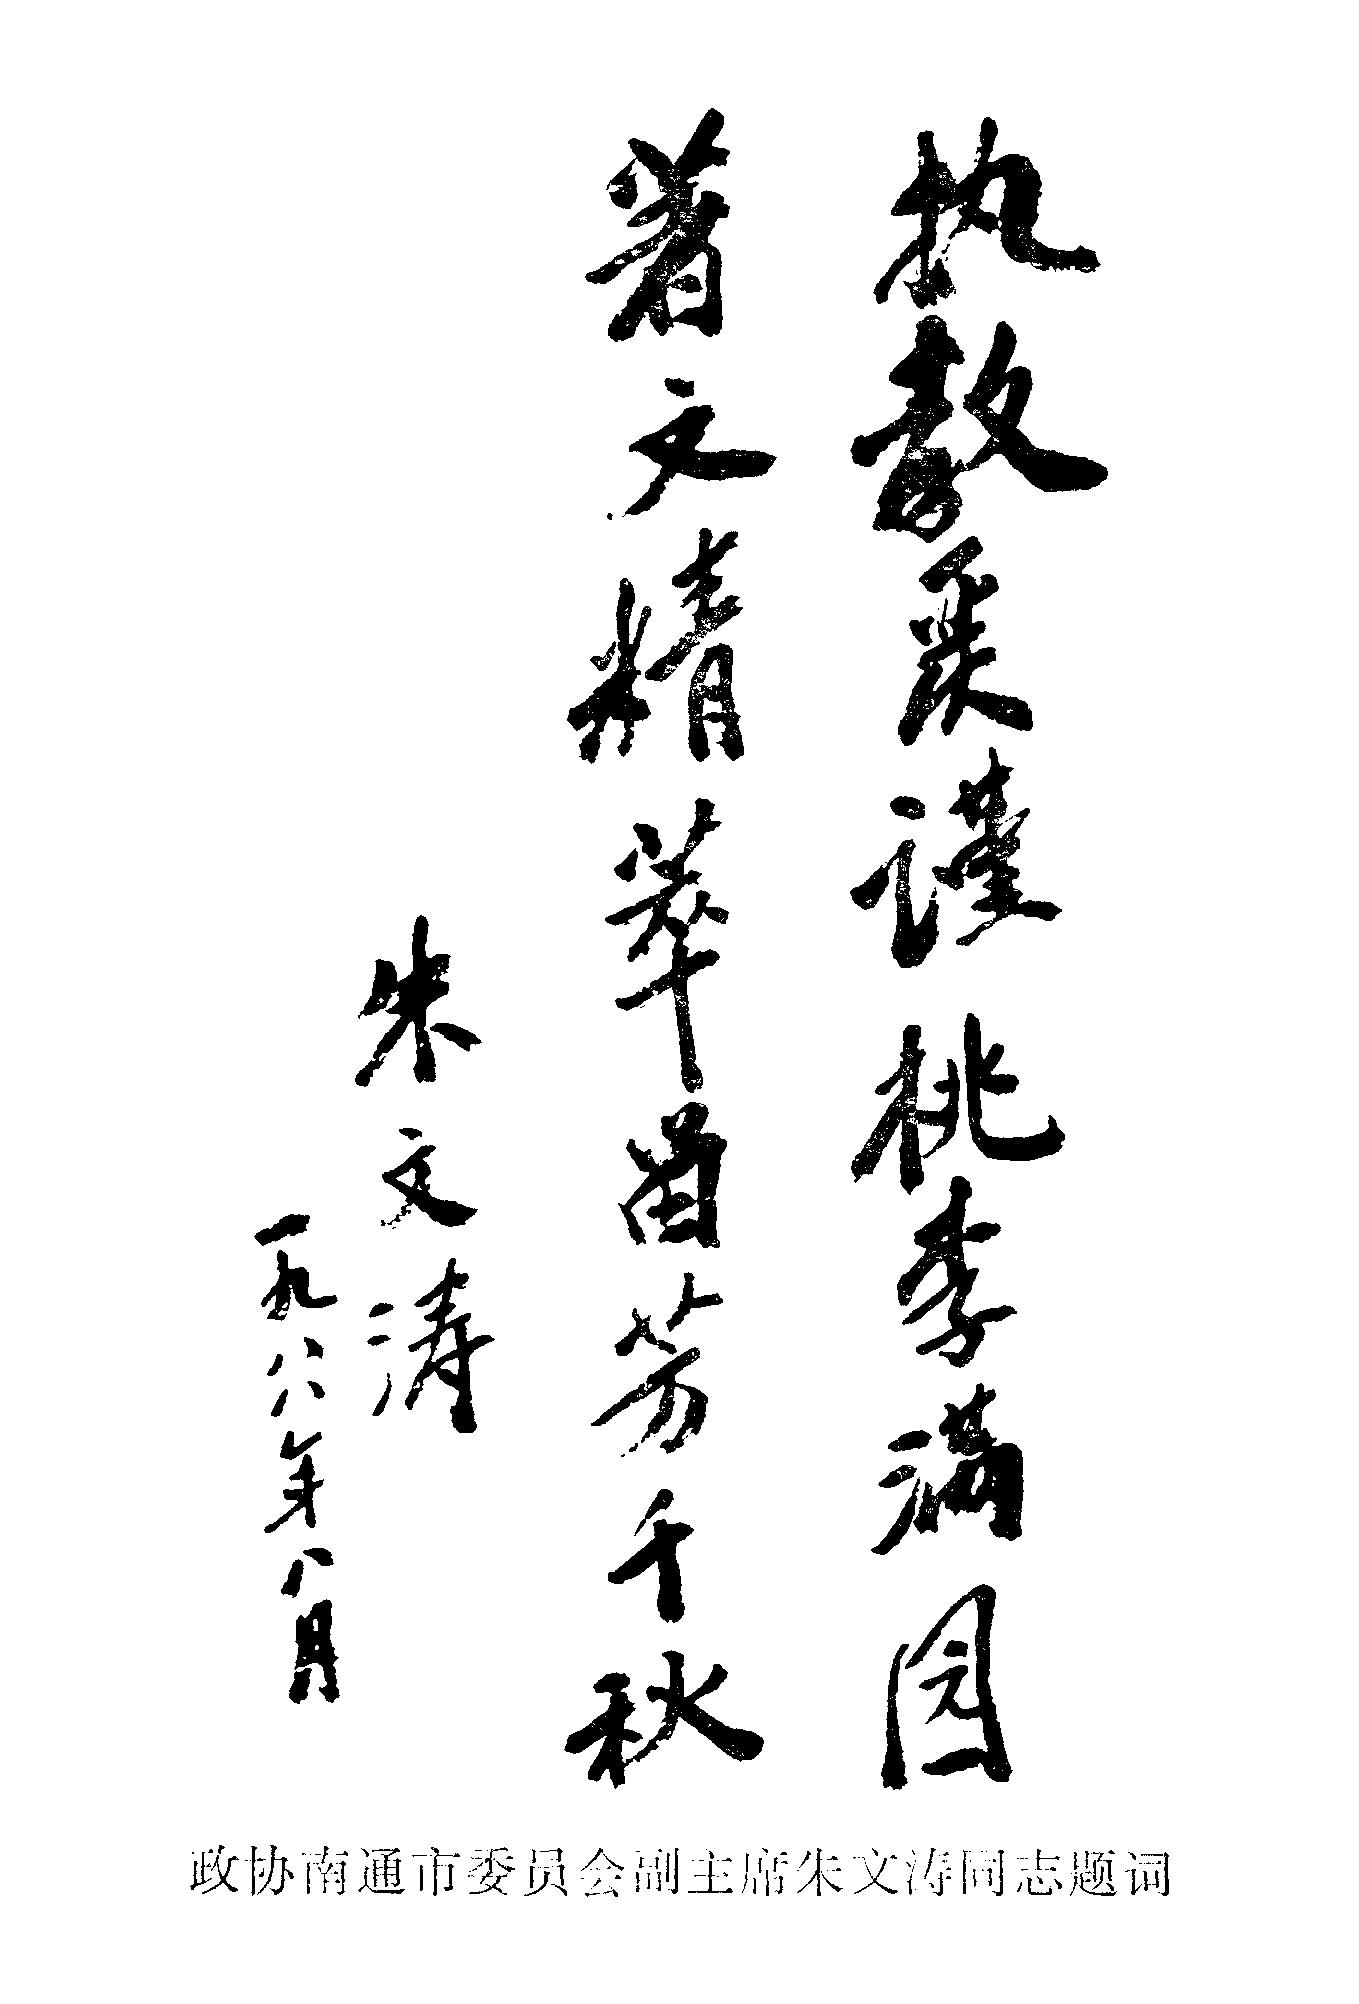 执教严谨桃李满园
著文精萃留芳千秋
朱文涛
一九八八年八月
政协南通市委员会副主席朱文涛同志题词